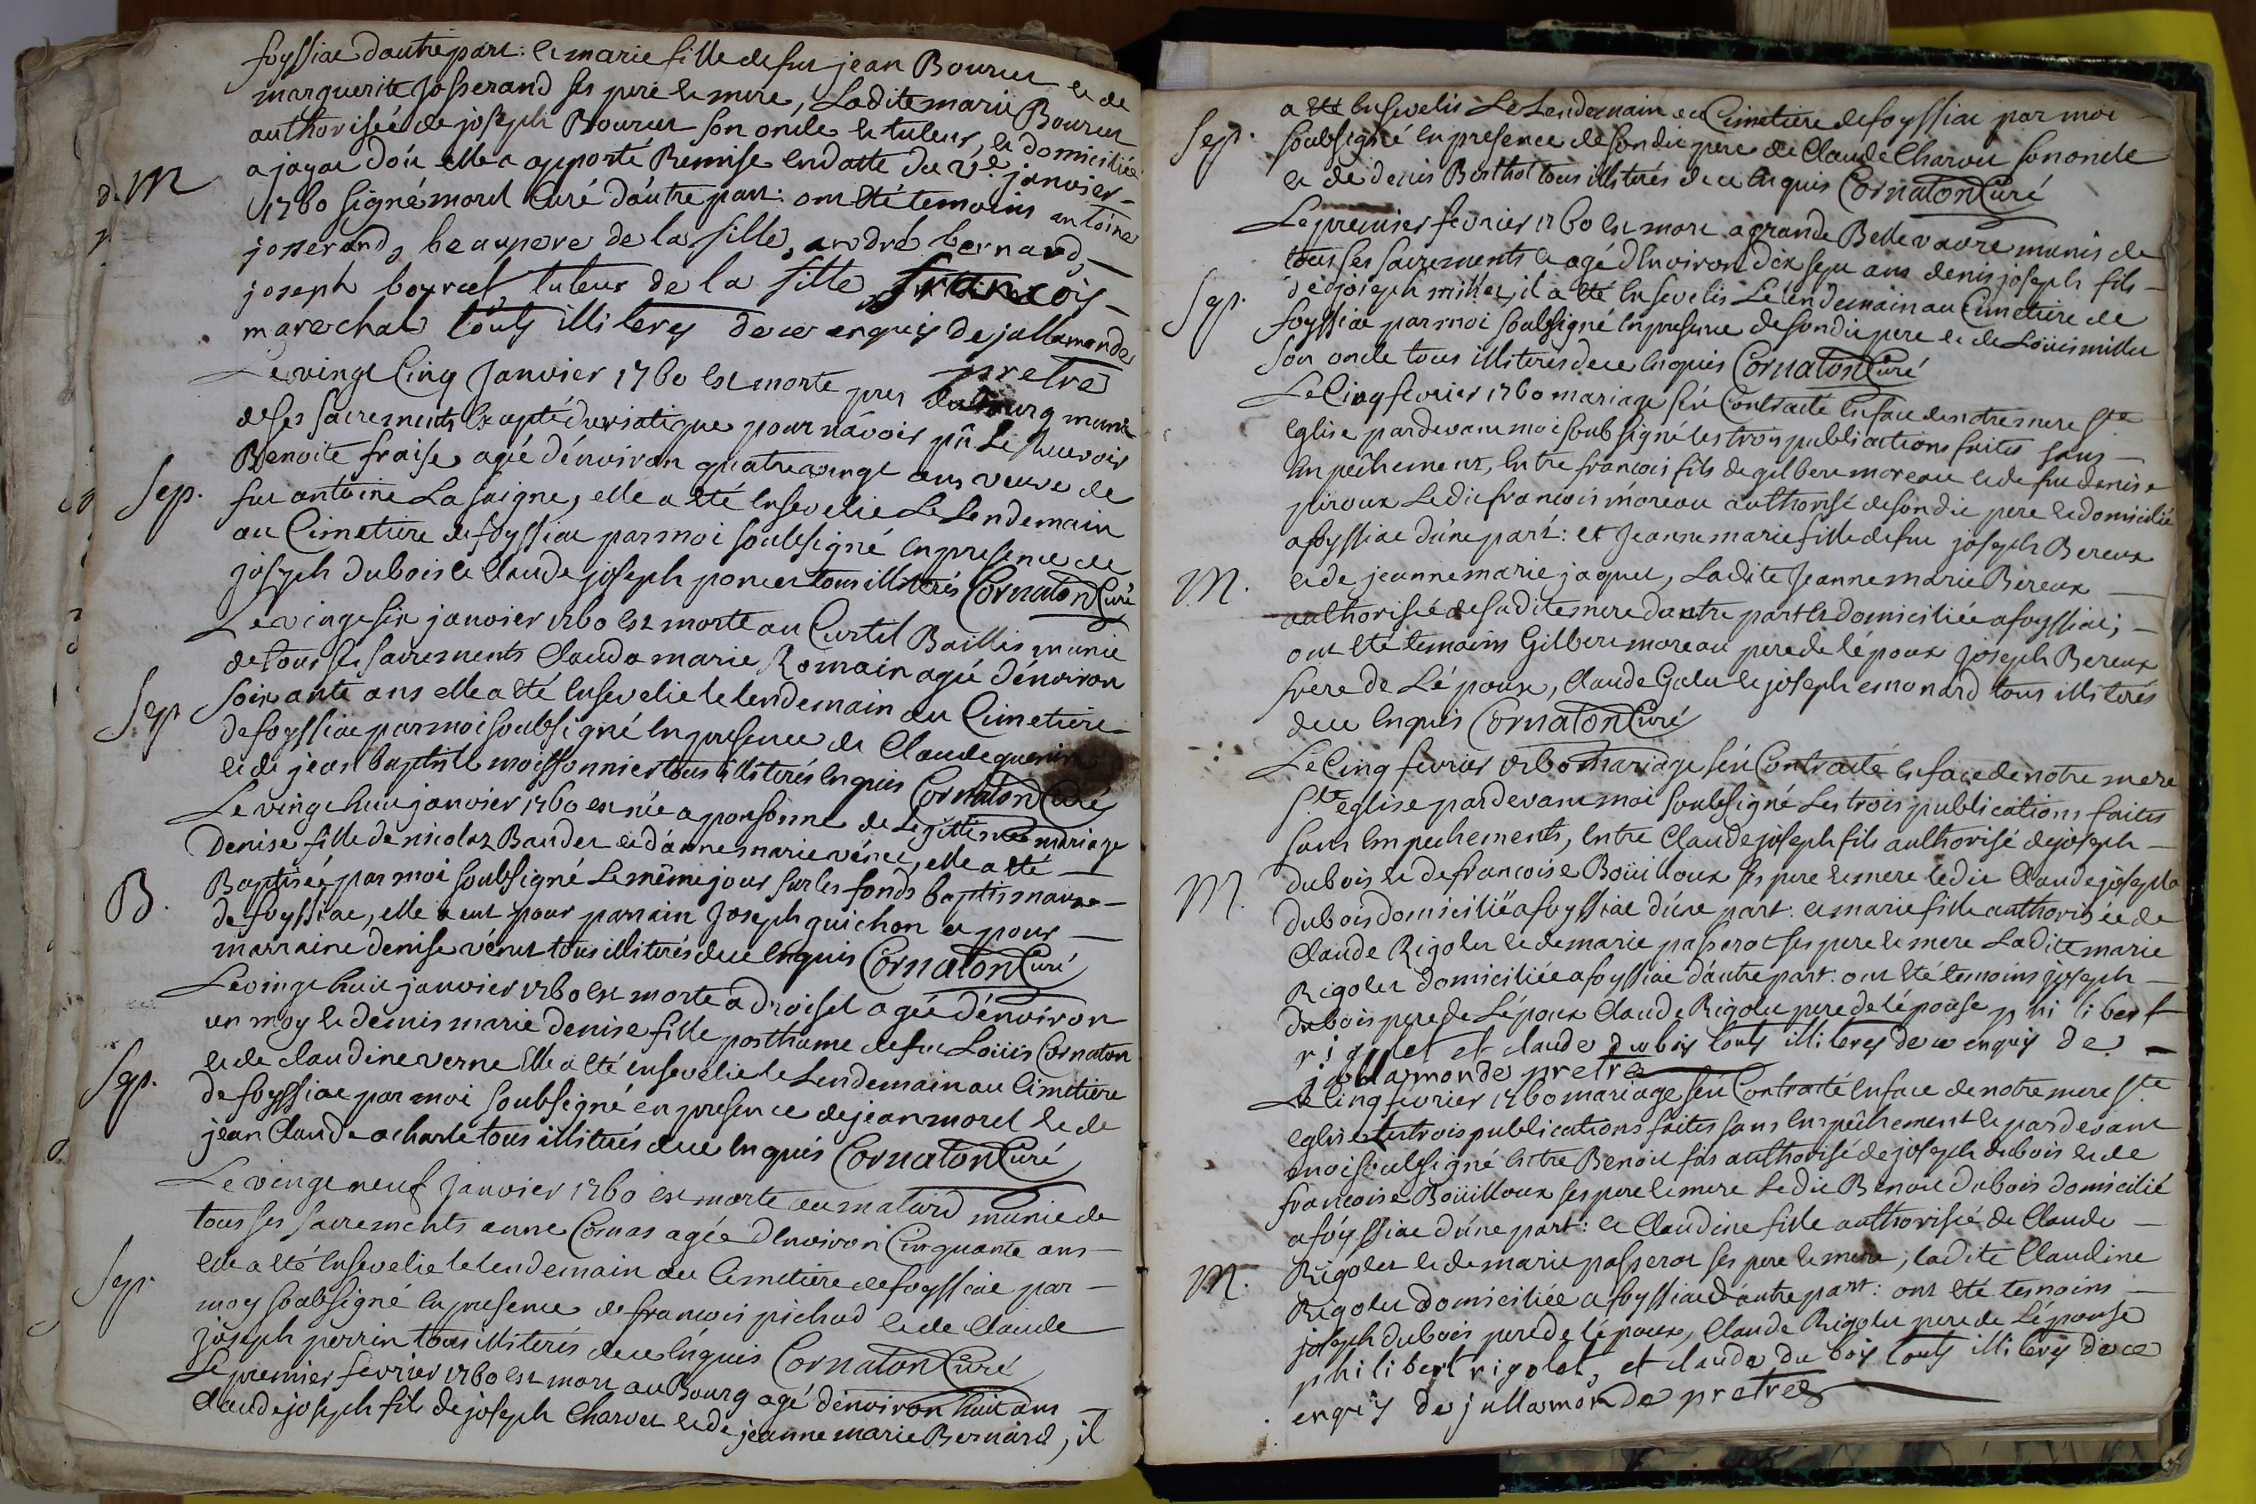 foyssiac dautre part: et marie fille de feu jean Bourcet et de
marguerite Josserand ses pere et mere, Ladite marie Bourcet
authorisée de joseph Bourcet son oncle et tuteur, et domiciliée
a jayac d'où elle a apporté Remise en datte du janvier
M
1760 signé morel Curé d'autre part: ont été temoins antoine
josserand, beaupere de la fille, andré bernard,
joseph bourcet tuteur de la fille françois
marechal touts illiterez de ce enquis dejullamonde
pretre
Le vingt Cinq Janvier 1760 est morte pres du Bourg munie
de ses sacrements Excepté du viatique pour n'avoir pû Le Recevoir
Benoite fraise agée d'environ quatrevingt ans veuve de
Sep.
feu antoine La saigne, elle a été Ensevelie Le Lendemain
au Cimetiere de foyssiac par moi soubsigné En presence de
joseph dubois et Claude joseph poncet tous illiterés Cornaton Curé
Le vingt six janvier 1760 est morte au Curtil Baillis munie
de tous ses sacrements Clauda marie Romain agée d'environ
Sep
soixante ans elle a été Ensevelie le lendemain au Cimetiere
de foyssiac par moi soubsigné En presence de Claude guerin
et de jean baptiste moissonnier tous illiterés Enquis Cornaton Curé
Le vingt huit janvier 1760 est née a ponsonne de Legittime mariage
Denise fille de nicolaz Baudet et d'anne marie vénet, elle a été
B.
Baptisée par moi soubsigné Le même jour sur les fonds baptismaux
de foyssiac, elle a eut pour parrain Joseph guichon et pour
marraine denise vénet tous illiterés de ce Enquis Cornaton Curé
Le vingt huit janvier 1760 est morte a Droiset agée d'environ
un moy et demis marie denise fille posthume de feu Loüis Cornaton
et de claudine verne Elle a été ensevelie le Lendemain au Cimetiere
Sep.
de foyssiac par moi soubsigné en presence de jean morel et de
jean Claude acharle tous illiterés de ce Enquis Cornaton Curé
Le vingt neuf Janvier 1760 est morte au matard munie de
tous ses sacrements anne Comas agée d'Environ Cinquante ans
Sep.
elle a été Ensevelie le lendemain au Cimetiere de foyssiac par
moy soubsigné En presence de francois pichod et de Claude
joseph perrin tous illiterés de ce Enquis Cornaton Curé
Le premier fevrier 1760 est mort au Bourg agé d'environ huit ans
Claude joseph fils de joseph Charvet et de jeanne marie Bernard, il
a été Ensevelis Le Lendemain au Cimetiere de foyssiac par moi
Sep.
soubsigné En presence de son dit pere de Claude Charvet son oncle
et de denis Berthot tous illiterés de ce Enquis Cornaton Curé
Le premier fevrier 1760 est mort a grande Bellevavre munis de
tous ses sacrements et agé d'Environ dix sept ans denis joseph fils
Sep.
de joseph millet, il a été Ensevelis Le lendemain au Cimetiere de
foyssiac par moi soubsigné En presence de son dit pere et de Loüis millet
son oncle tous illiterés de ce Enquis Cornaton Curé
Le Cinq fevrier 1760 mariage s'est Contracté En face de notre mere Ste
Eglise pardevant moi soubsigné les trois publications faites sans
Empêchement, Entre francois fils de gilbert moreau et de feu denise
piroux Le dit francois moreau authorisé de son dit pere et domicilié
a foyssiac d'une part: et Jeanne marie fille de feu joseph Bereux
M.
et de jeanne marie jaquet, Ladite Jeanne marie Bereux
authorisée de sadite mere dautre part et domiciliée a foyssiac;
ont été temoins Gilbert moreau pere de l'époux joseph Bereux
frere de L'épouse, Claude Galet et joseph esmonard tous illiterés
de ce Enquis Cornaton Curé
Le Cinq fevrier 1760 mariage s'est Contracté En face de notre mere
Ste eglise pardevant moi soubsigné Les trois publications faites
sans Empechements, entre Claude joseph fils authorisé de joseph
M.
dubois et de francoise Boüilloux ses pere et mere ledit Claude joseph
dubois domicilié a foyssiac d'une part: et marie fille authorisée de
Claude Rigolet et de marie passerot ses pere et mere Ladite marie
Rigolet domiciliée a foyssiac d'autre part: ont été temoins joseph
dubois pere de L'époux Claude Rigolet pere de l'épouse philibert
rigolet et claude dubois touts illiterez de ce enquis de
jullamonde pretre
Le Cinq fevrier 1760 mariage s'est Contracté En face de notre mere Ste
eglise Les trois publications faites sans Empêchement et pardevant
moi soubsigné Entre Benoit fils authorisé de joseph dubois et de
francoise Boüilloux ses pere et mere Le dit Benoit dubois domicilié
a foyssiac d'une part: et Claudine fille authorisée de Claude
M.
Rigolet et de marie passerot ses pere et mere; ladite Claudine
Rigolet domiciliée a foyssiac d'autre part: ont été temoins
joseph dubois pere de l'époux, Claude Rigolet pere de L'épouse
philibert rigolet, et claude du bois touts illiterez de ce
enquis de jullamonde pretre